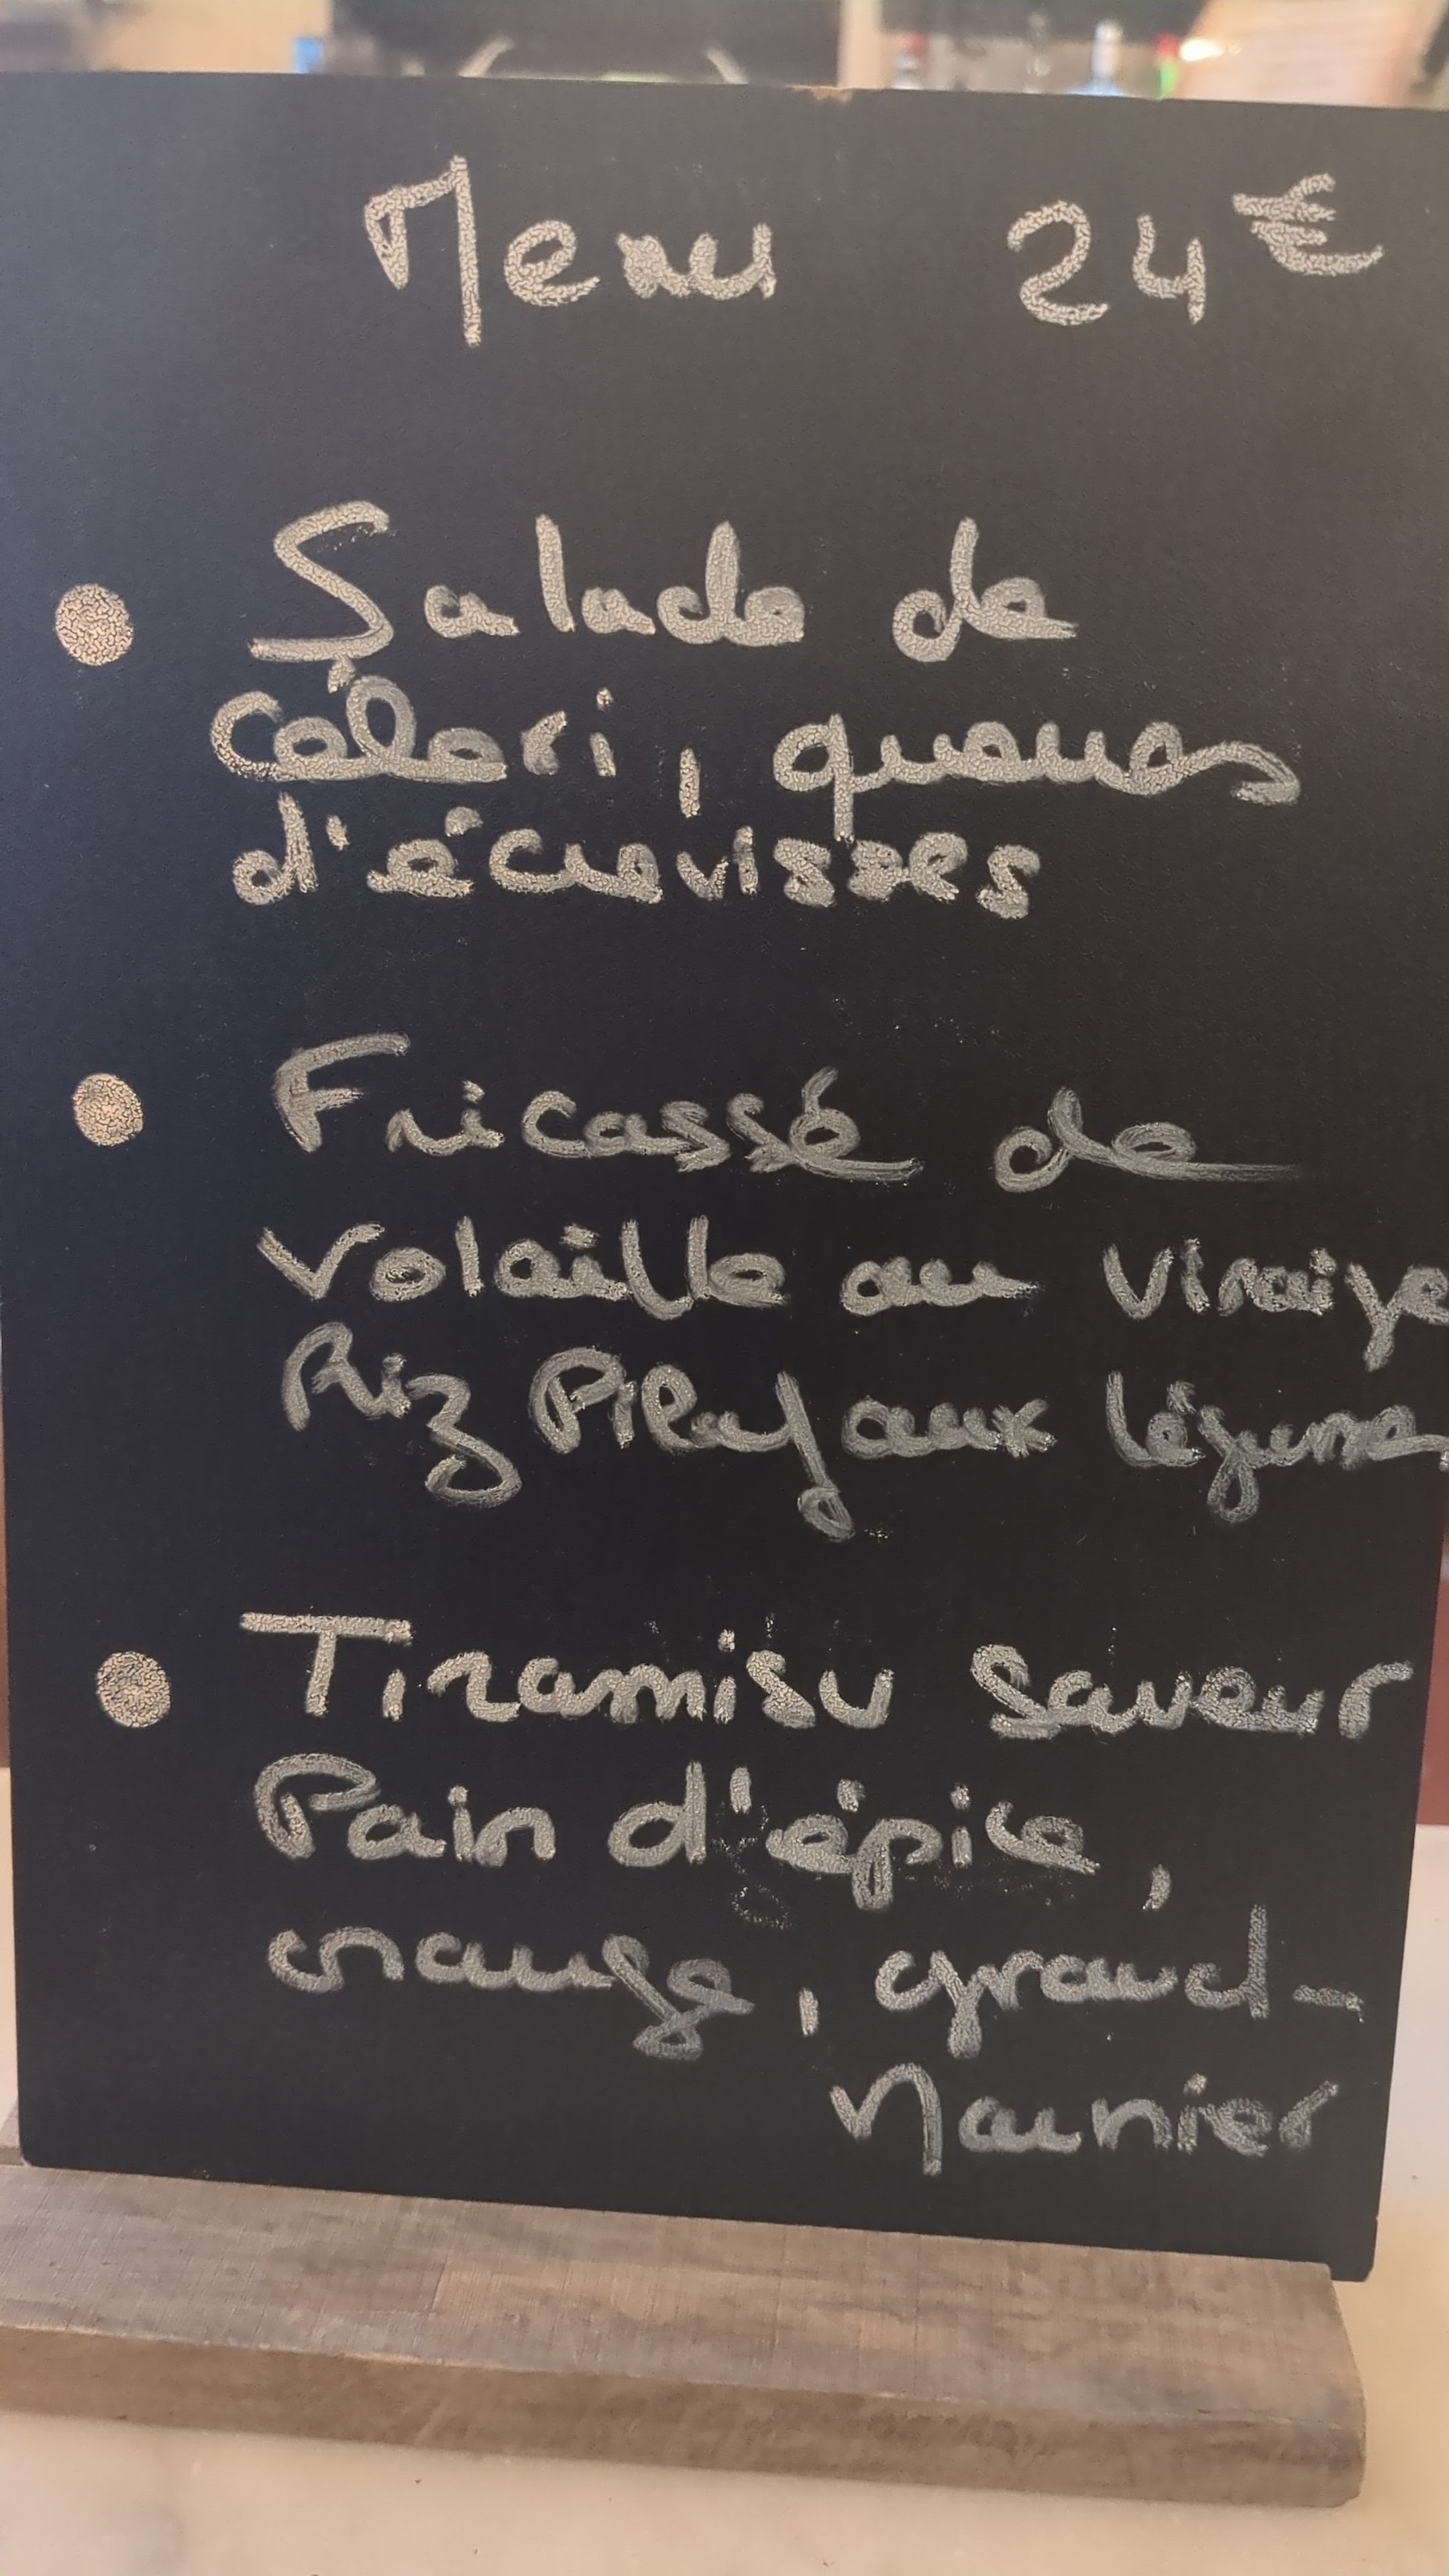 Menu 24€
Salade de
Céleri, queues
d'écrevisses
Fricassé de
Volaille au
Riz Pilaf aux légumes
Tiramisu saveur
Pain d'épice,
orange, grand-
Marnier